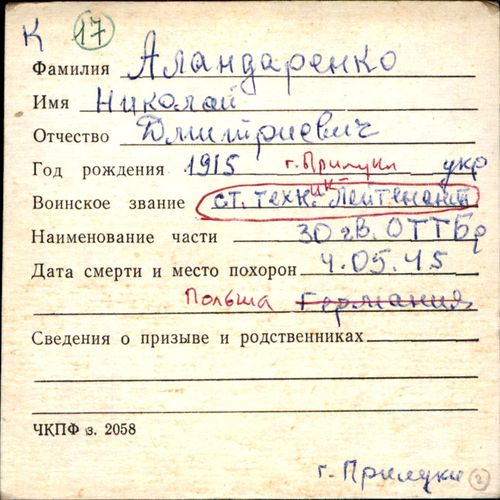 К 17
Фамилия Аландаренко
Имя Николай
Отчество Дмитриевич
Год рождения 1915 г. Прилуки укр
Воинское звание ст. техник-лейтенант
Наименование части 30 гв. ОТТБр
Дата смерти и место похорон 4.05.45
Польша Германия
Сведения о призыве и родственниках
ЧКПФ з. 2058
г. Прилуки 2